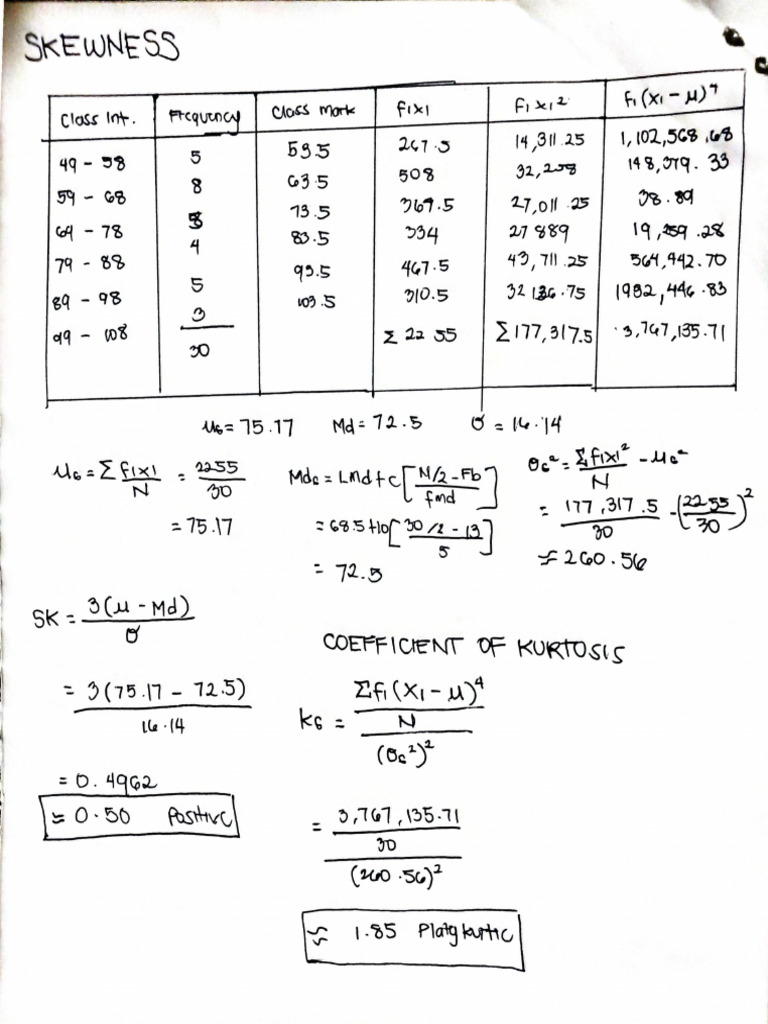 SKEWNESS
Class Int. Frequency Class Mark fixi fixi² fi(xi - μ)⁴
49 - 58 5 53.5 267.5 14,311.25 1,102,568.68
59 - 68 8 63.5 508 32,258 148,379.33
69 - 78 5 73.5 367.5 27,011.25 38.89
79 - 88 4 83.5 334 27 889 19,259.28
89 - 98 5 93.5 467.5 43,711.25 564,442.70
99 - 108 3 103.5 310.5 32136.75 1932,446.83
30 Σ 2255 Σ177,317.5 3,767,135.71
μG = 75.17 Md = 72.5 σ = 16.14
μG = Σ fixi/N = 2255/30
= 75.17
MdG = Lmd + c [N/2 - Fb / fmd]
= 68.5 + 10 [30/2 - 13 / 5]
= 72.5
σG² = Σfixi²/N - μG²
= 177,317.5/30 - (2255/30)²
≈ 260.56
SK = 3(μ - Md)/σ
= 3(75.17 - 72.5)/16.14
= 0.4962
≈ 0.50 Positive
COEFFICIENT OF KURTOSIS
KG = Σfi(Xi - μ)⁴/N / (σG²)²
= 3,767,135.71/30 / (260.56)²
≈ 1.85 Platykurtic